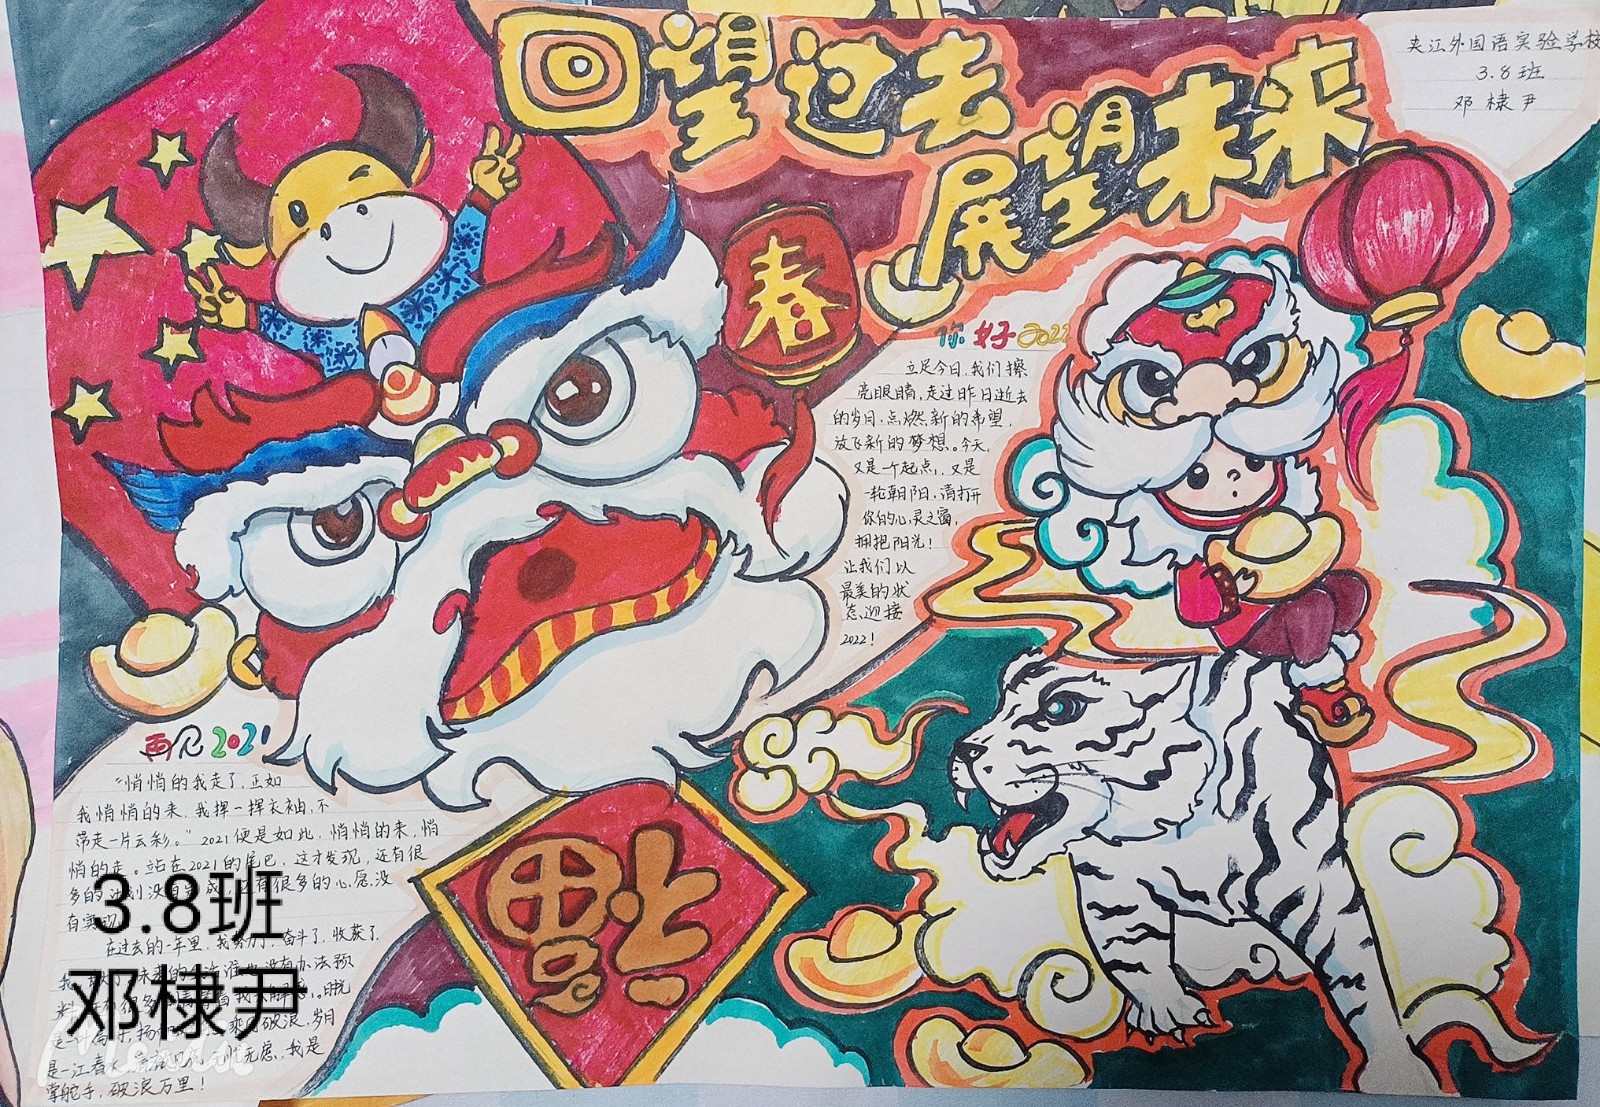 回望过去
展望未来
夹江外国语实验学校
3.8班
邓棣尹
春
你好2022
立足今日,我们擦
亮眼睛,走过昨日逝去
的岁月,点燃新的希望,
放飞新的梦想。今天,
又是一个起点,又是
一轮朝阳,请打开
你的心灵之窗,
拥抱阳光!
让我们以
最美的状
态迎接
2022!
再见2021
“悄悄的我走了,正如
我悄悄的来,我挥一挥衣袖,不
带走一片云彩。”2021便是如此,悄悄的来,悄
悄的走。站在2021的尾巴,这才发现,还有很
多的计划没有完成,还有很多的心愿没
有实现
在过去的一年里,我努力了,奋斗了,收获了
我 未来的 谁也没有办法预
料 自我 。
是一 破浪,岁月
是一江春水 无虑,我是
掌舵手,破浪万里!
福
3.8班
邓棣尹